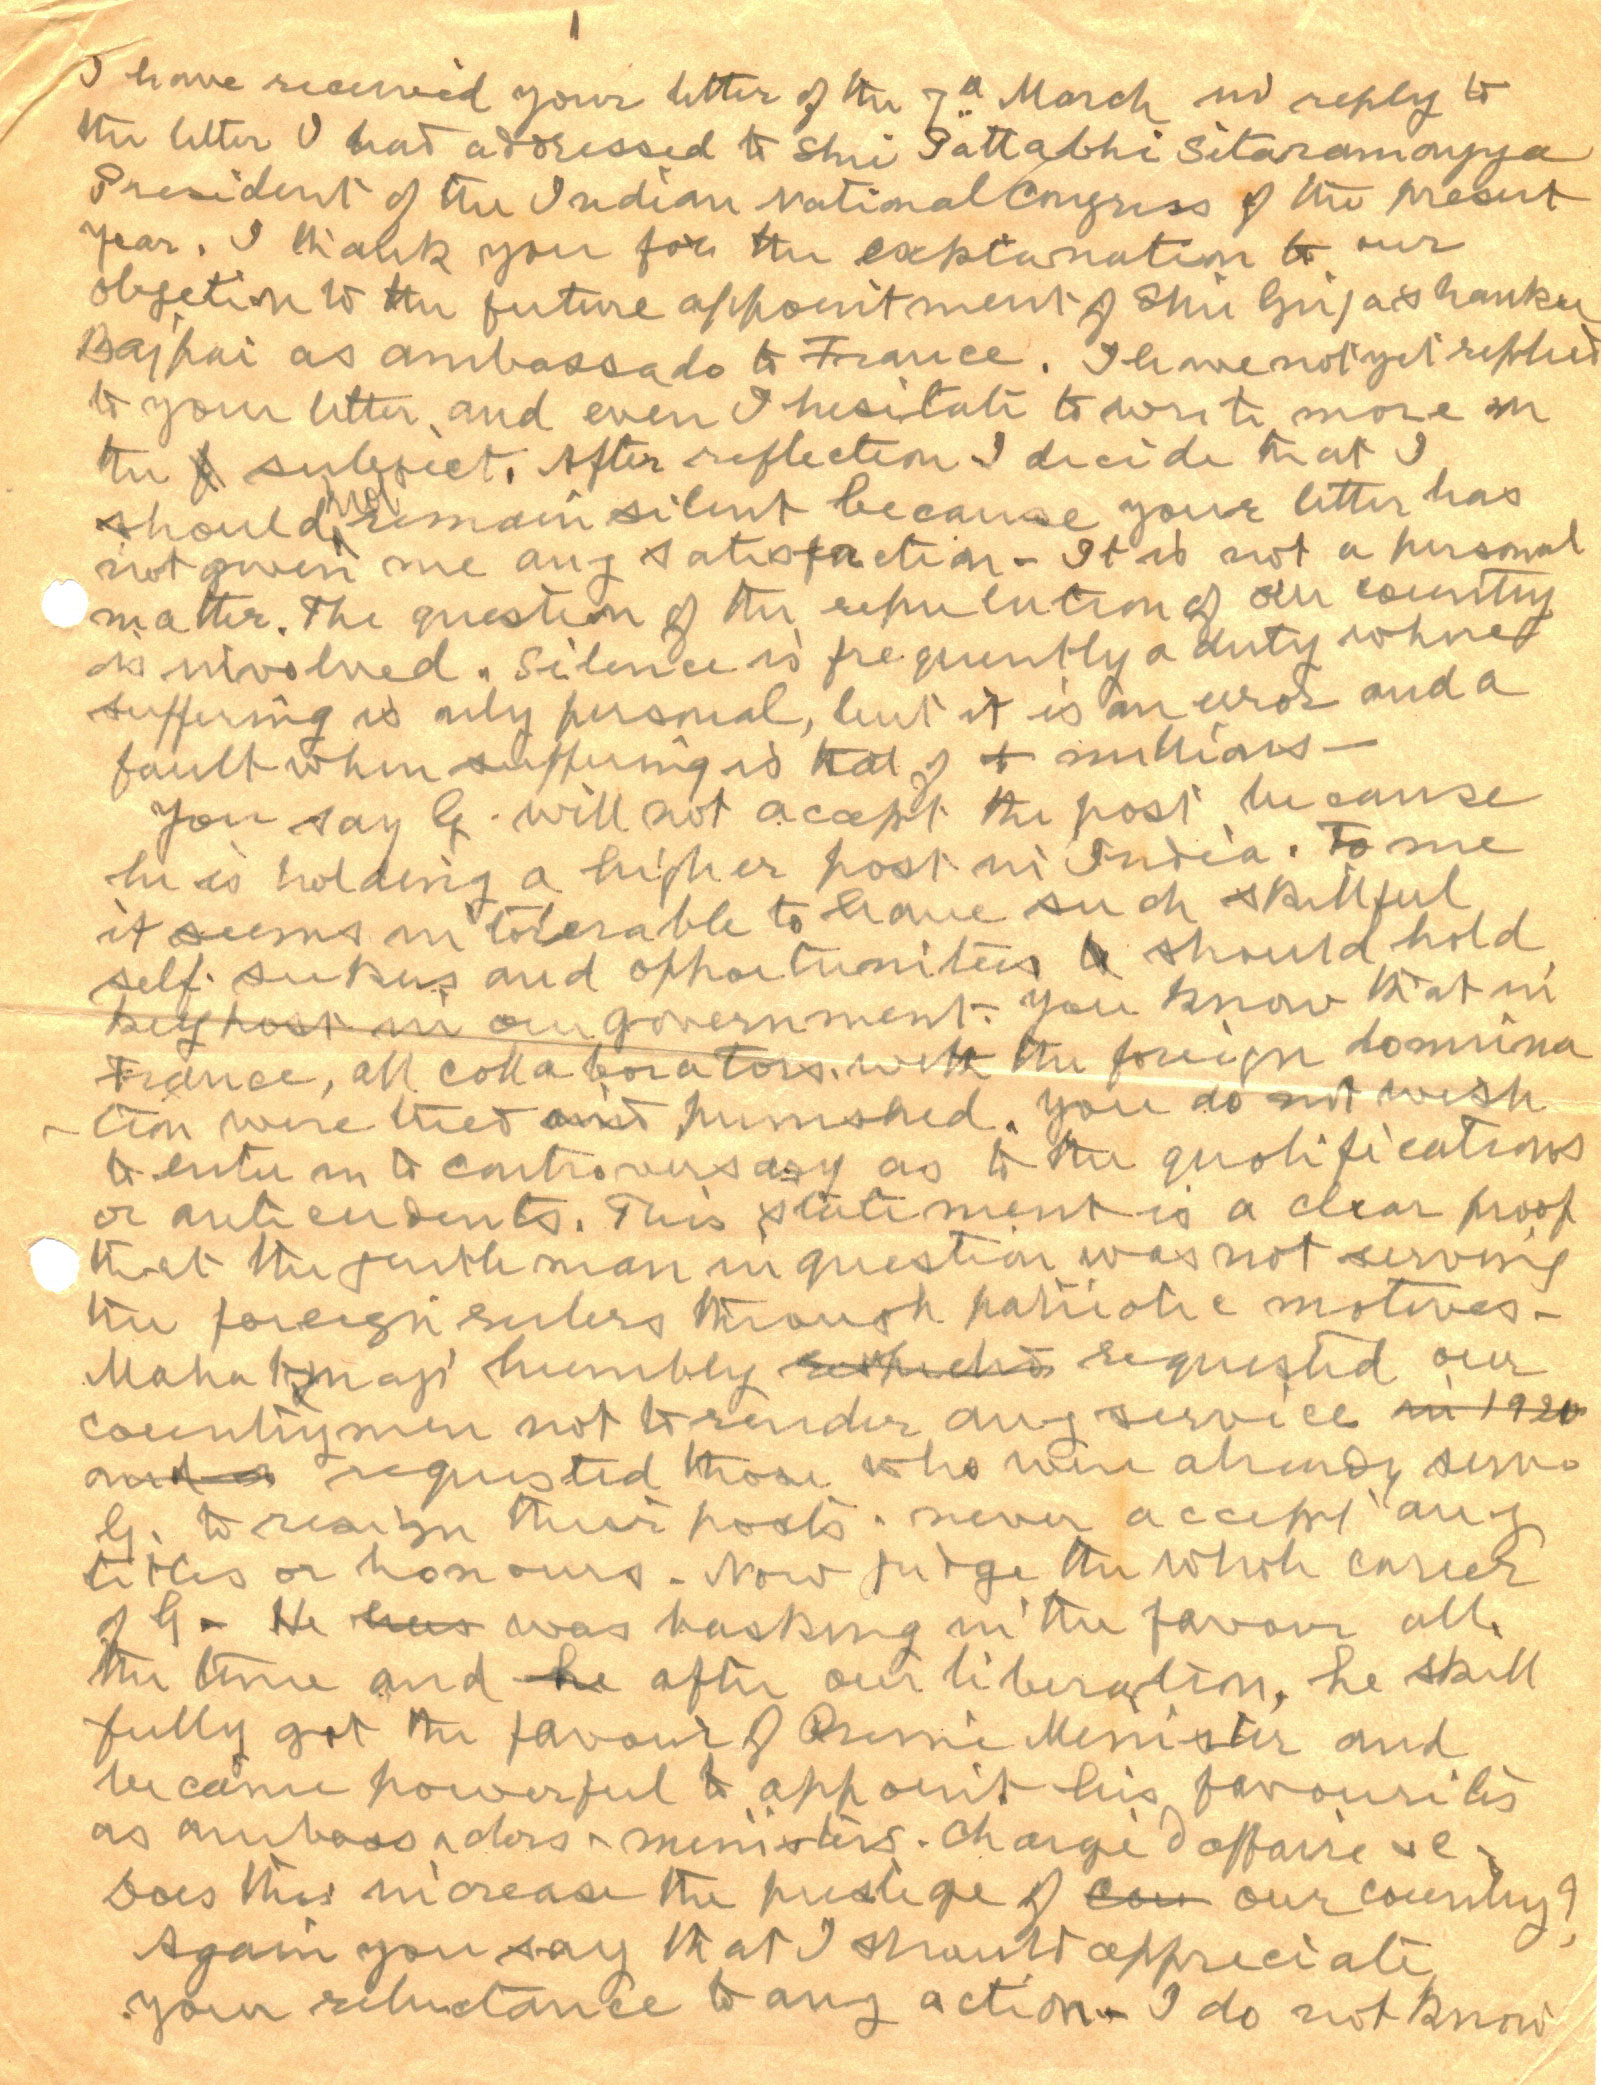 I have received your letter of the 7th March in reply to
the letter I had addressed to Shri Pattabhi Sitaramayya
President of the Indian National Congress of the present
year. I thank you for the explanation to our
objetion to the future appointment of Shri Girjashanker
Bajpai as ambassado to France. I have not yet replied
to your letter, and even I hesitate to write more on
the subject. After reflection I decide that I
should not remain silent because your letter has
not given me any satisfaction - It is not a personal
matter. The question of the reputution of our country
is involved. Silence is frequently a duty when
suffering is only personal, but it is an error and a
fault when suffering is that of millions —
You say G. will not accept the post because
he is holding a higher post in India. To me
it seems intolerable to have such skillful
self. seekers and opportunities should hold
key post in our government. You know that in
France, all collaborators with the foreign domina
- tion were tried and punished. You do not wish
to enter in to controversay as to the qualifications
or anticendents. This statement is a clear proof
that the gentleman in question was not serving
the foreign rulers through patriotic motives -
Mahatmaji humbly requested our
countrymen not to render any service in 1920
and requested those who were already serv.
G. to resign their posts. never accept any
titles or honours. Now judge the whole career
of G. He has was basking in the favour all
the time and he after our liberation, he skill
fully got the favour of Prime Minister and
became powerful to appoint his favourites
as ambassadors, ministers. Chargé d affaire &c.
Does this increase the prestige of our country?
Again you say that I should appreciate
your reluctance to any action - I do not know